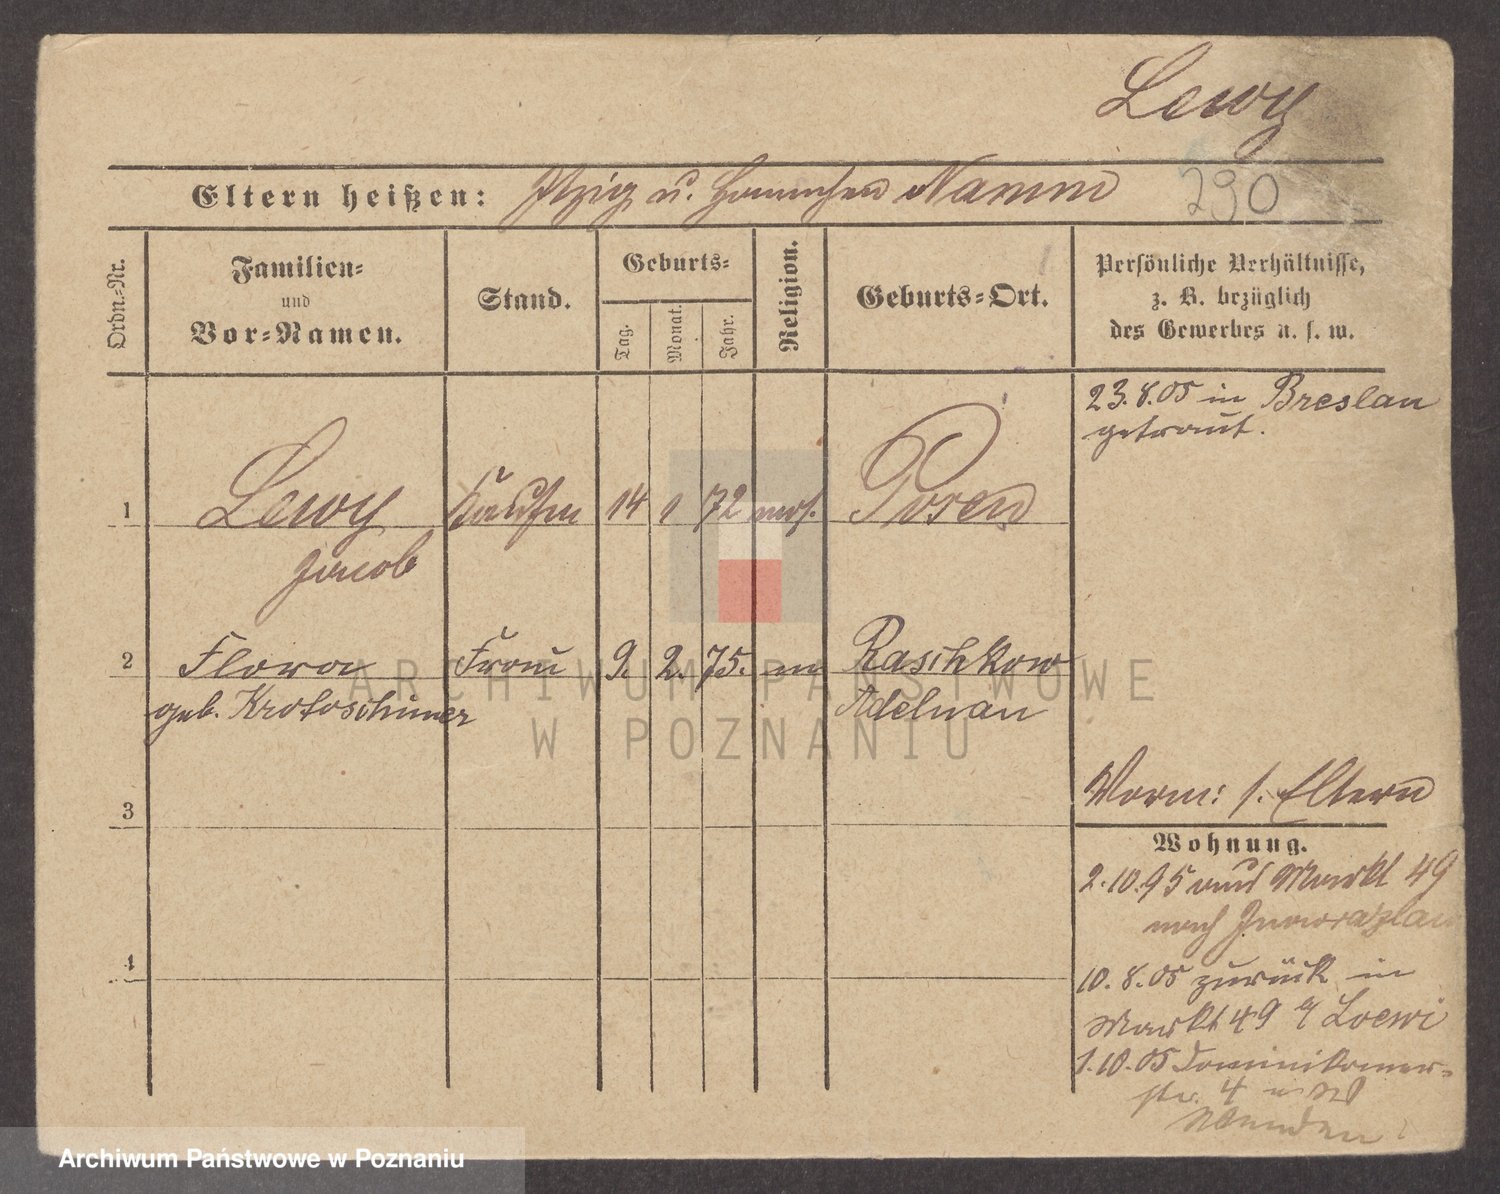 Lewy
Eltern heißen: Itzig u. Hannchen Namm
290
Ordn.-Nr.
Familien-
und
Vor-Namen.
Stand.
Geburts-
Tag.
Monat.
Jahr.
Religion.
Geburts-Ort.
Persönliche Verhältnisse,
z. B. bezüglich
des Gewerbes u. s. w.
23.8.05 in Breslau
getraut.
1 Lewy Kaufm 14 1 72 mos. Posen
Jacob
2 Flora Frau 9. 2. 75. m Raschkow
geb. Krotoschiner Adelnau
3
Vorm: s. Eltern
Wohnung.
2.10.95 aus Markt 49
nach Inowrazlaw
4
10.8.05 zurück in
Markt 49 b/ Loewi
1.10.05 Dominikaner-
str. 4
ARCHIWUM PAŃSTWOWE
W POZNANIU
Archiwum Państwowe w Poznaniu